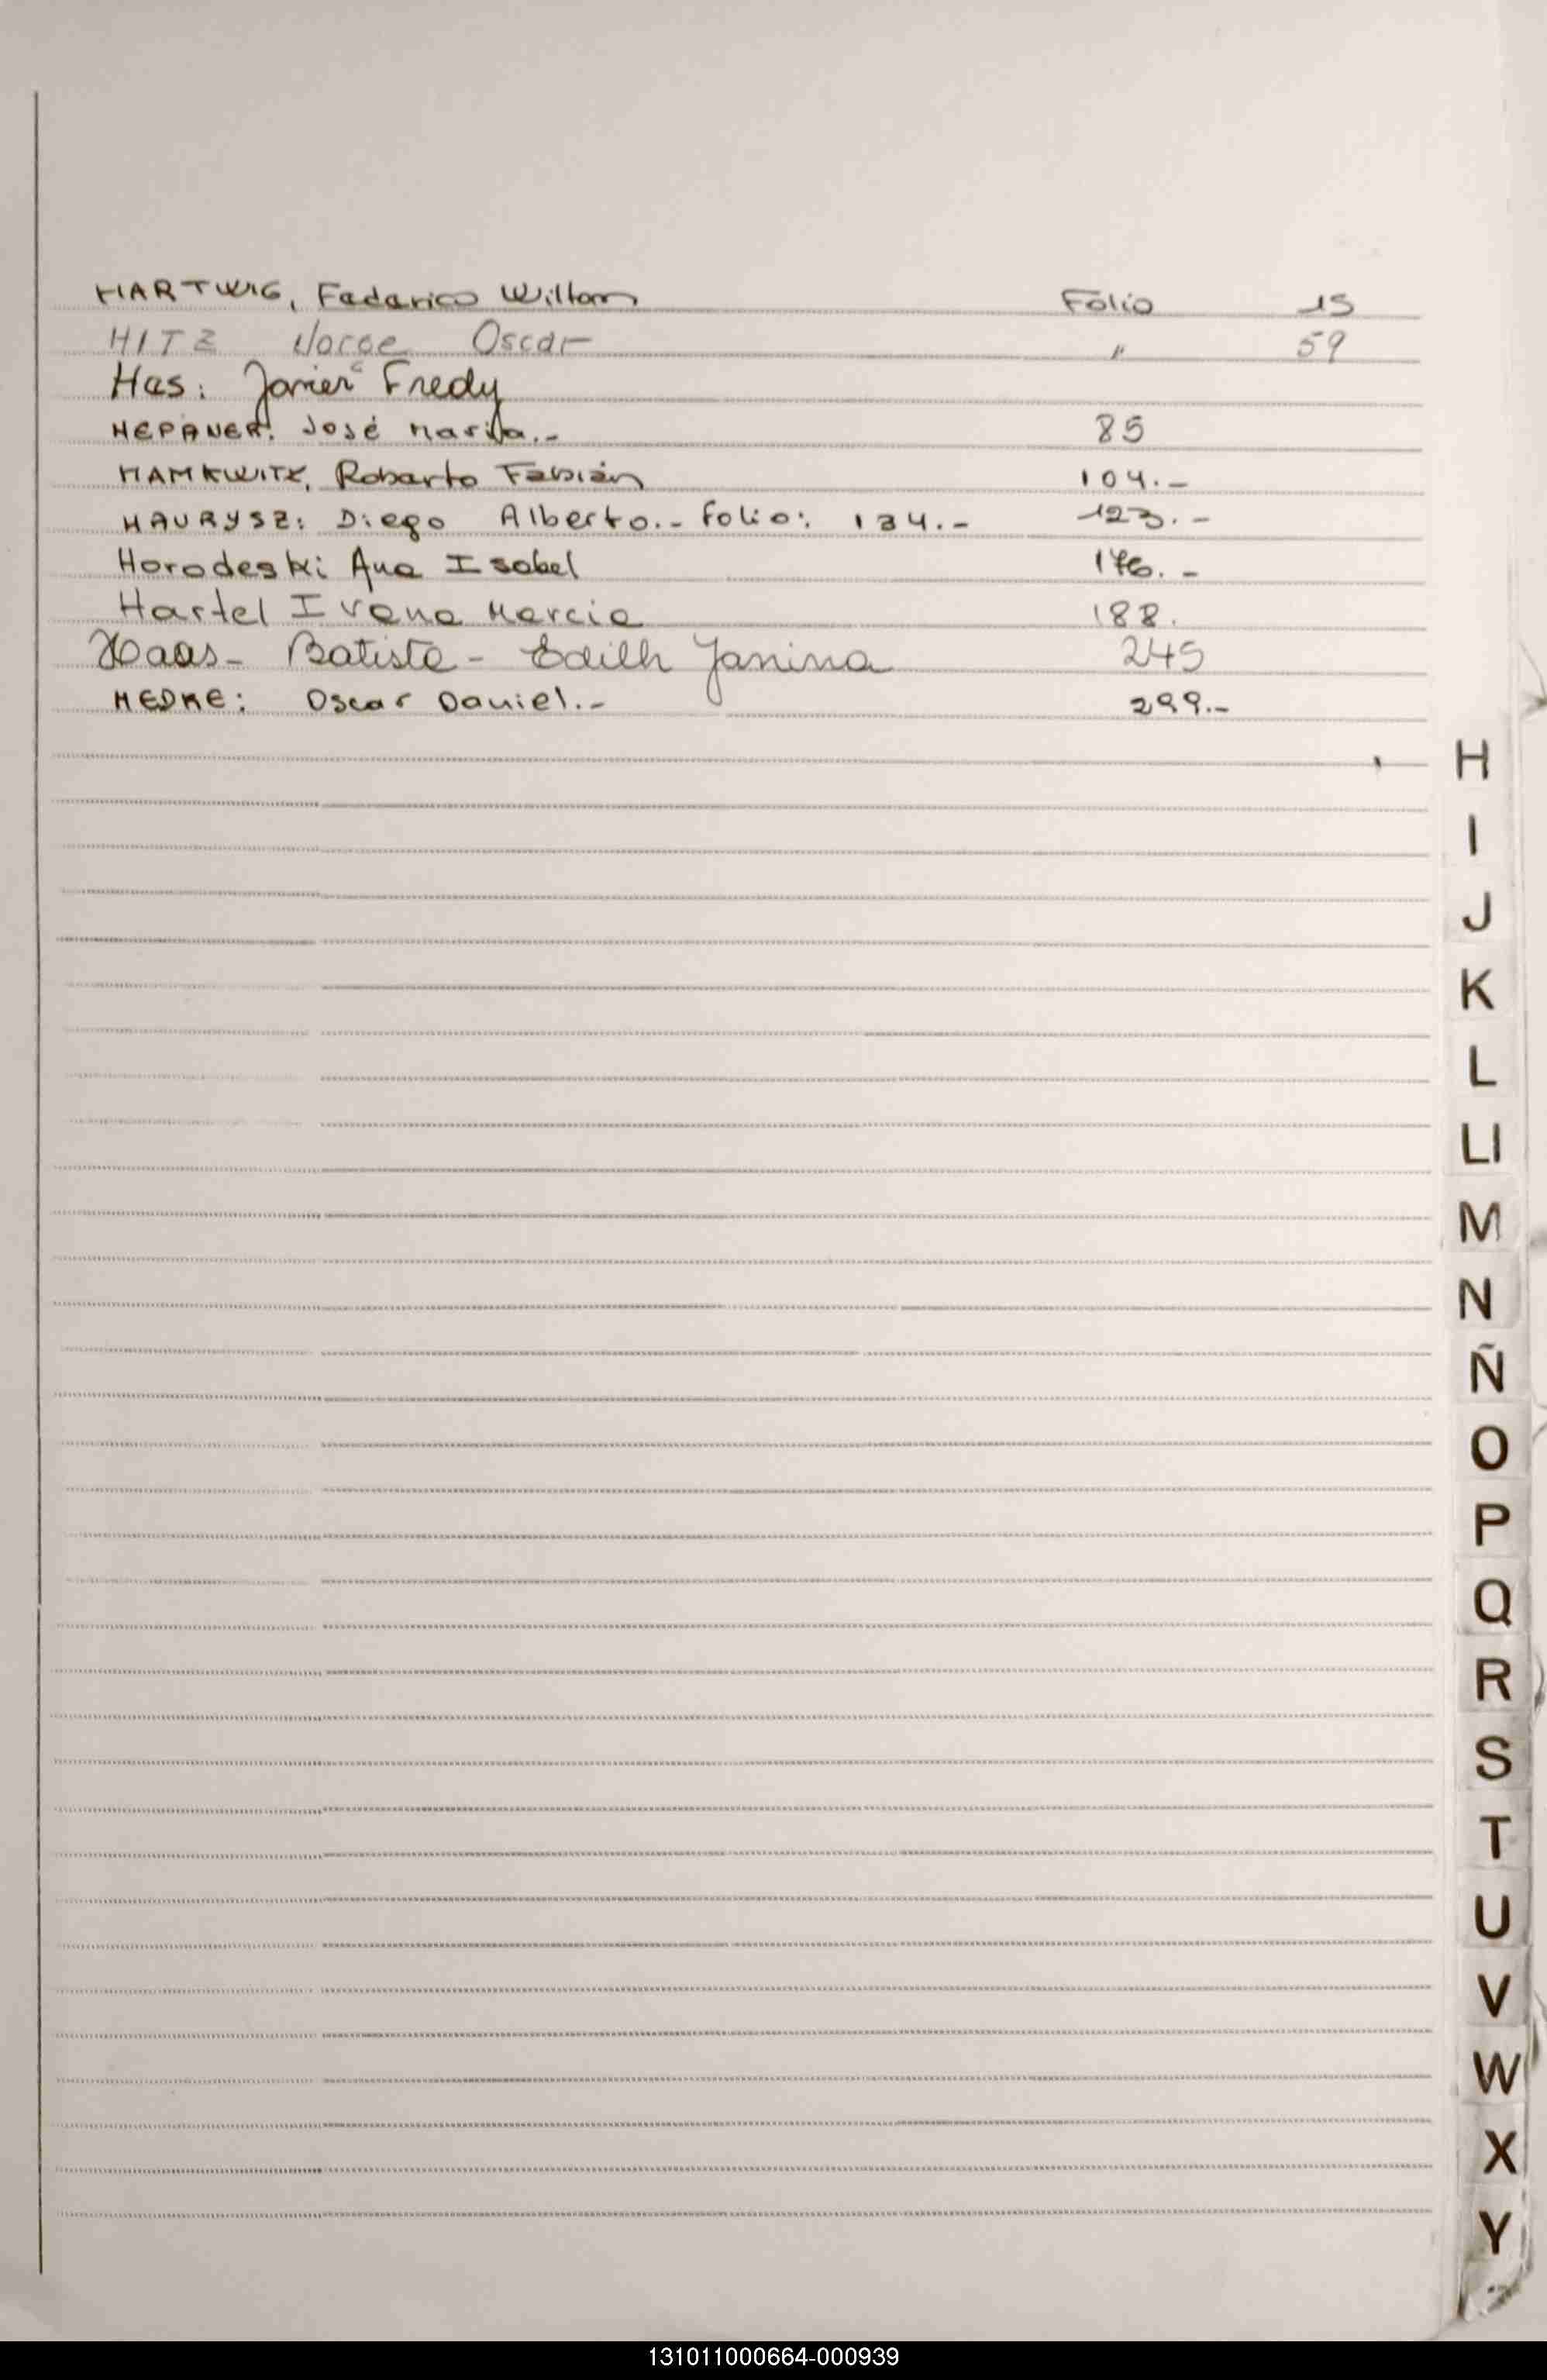 HARTWIG, Federico Willam Folio 15
HITZ Jorge Oscar " 59
Has: Javier Fredy
HEPANER: José Maria.- 85
HAMKWITZ, Roberto Fabián 104.-
HAURYSZ: Diego Alberto.- Folio: 134.- 123.-
Horodeski Ana Isabel 176.-
Hartel Ivana Marcia 188.
Haas- Batista- Edith Janina 245
HEDKE: Oscar Daniel.- 299.-
H
I
J
K
L
Ll
M
N
Ñ
O
P
Q
R
S
T
U
V
W
X
Y
131011000664-000939